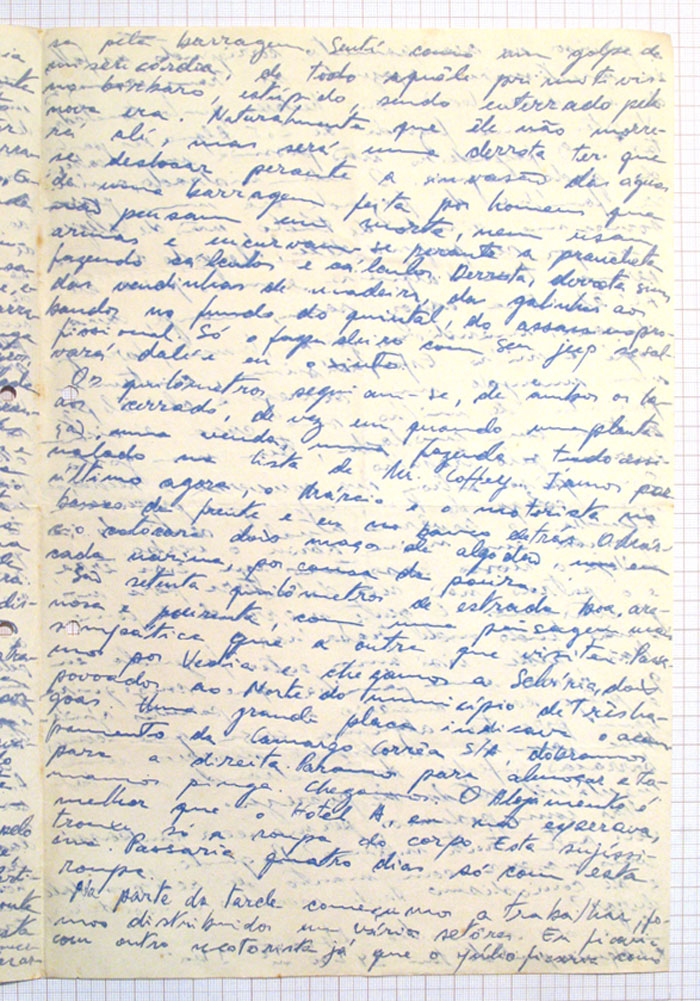 se pela barragem. Senti como um golpe de
misericórdia, de todo aquêle primitivis-
mo bárbaro, estúpido, sendo enterrado pela
nova era. Naturalmente que êle não morre-
rá ali, mas será uma derrota ter que
se deslocar perante a invasão das águas
de uma barragem feita por homens que
não pensam em morte, nem usam
armas e encurvam-se perante a prancheta
fazendo cálculos e cálculos. Derrota, derrota sim
das vendinhas de madeira, das galinhas aos
bandos no fundo do quintal, do assassino pro-
fissional. Só o fazendeiro com seu jeep se sal-
vará dali e eu o sinto.
Os quilômetros seguiam-se, de ambos os la-
dos cerrado, de vez em quando uma planta-
ção, uma venda, uma fazenda e tudo assi-
nalado na lista de Mr. Coffey. Íamos por
último agora, o Márcio e o motorista no
banco da frente e eu no banco detrás. O Már-
cio colocara dois maços de algodão, um em
cada narina, por causa da poeira.
São setenta quilômetros de estrada boa, are-
nosa e poeirenta, com uma paisagem mais
simpática que a outra que visitei. Passa-
mos por Véstia e chegamos a Selvíria, dois
povoados ao Norte do município de Três La-
goas. Uma grande placa indicava o acam-
pamento da Camargo Corrêa S/A, dobramos
para a direita. Paramos para almoçar e to-
mamos pinga. Chegamos. O Alojamento é
melhor que o Hotel A, eu não esperava,
trouxe só a roupa do corpo. Esta sujíssi-
ma. Passaria quatro dias só com esta
roupa.
Na parte da tarde começamos a trabalhar, fo-
mos distribuidos em vários setôres. Eu ficaria
com outro motorista já que o Júlio ficara com